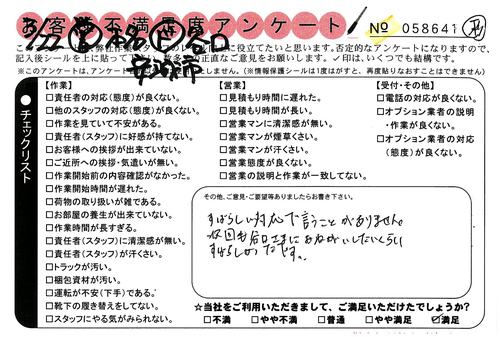 お客様不満足度アンケート
No 058641
7/22
谷口
安城市
弊社作業スタッフのレベル向上に役立てたいと思います。否定的なアンケートになりますので、
記入後シールを上に貼って下さい。
※このアンケートは、
(※情報保護シールは1度はがすと、再度貼りなおすことはできません)
チェックリスト
【作業】
□責任者の対応(態度)が良くない。
□他のスタッフの対応(態度)が良くない。
□作業を見ていて不安がある。
□責任者(スタッフ)に好感が持てない。
□お客様への挨拶が出来ていない。
□ご近所への挨拶・気遣いが無い。
□作業開始前の内容確認がなかった。
□作業開始時間が遅れた。
□荷物の取り扱いが雑である。
□お部屋の養生が出来ていない。
□作業時間が長すぎる。
□責任者(スタッフ)に清潔感が無い。
□責任者(スタッフ)が汗くさい。
□トラックが汚い。
□梱包資材が汚い。
□運転が不安(下手)である。
□靴下の履き替えをしてない。
□スタッフにやる気がみられない。
【営業】
□見積もり時間に遅れた。
□見積もり時間が長い。
□営業マンに清潔感が無い。
□営業マンが煙草くさい。
□営業マンが汗くさい。
□営業態度が良くない。
□営業の説明と作業が一致してない。
【受付・その他】
□電話の対応が良くない。
□オプション業者の説明
・作業が良くない。
□オプション業者の対応
(態度)が良くない。
その他、ご意見・ご要望等ありましたらお書き下さい。
すばらしい対応で言うことがありません。
次回も谷口さまにおねがいしたいくらい
すばらしかったです。
☆当社をご利用いただきまして、ご満足いただけたでしょうか?
□不満 □やや不満 □普通 □やや満足 ☑満足